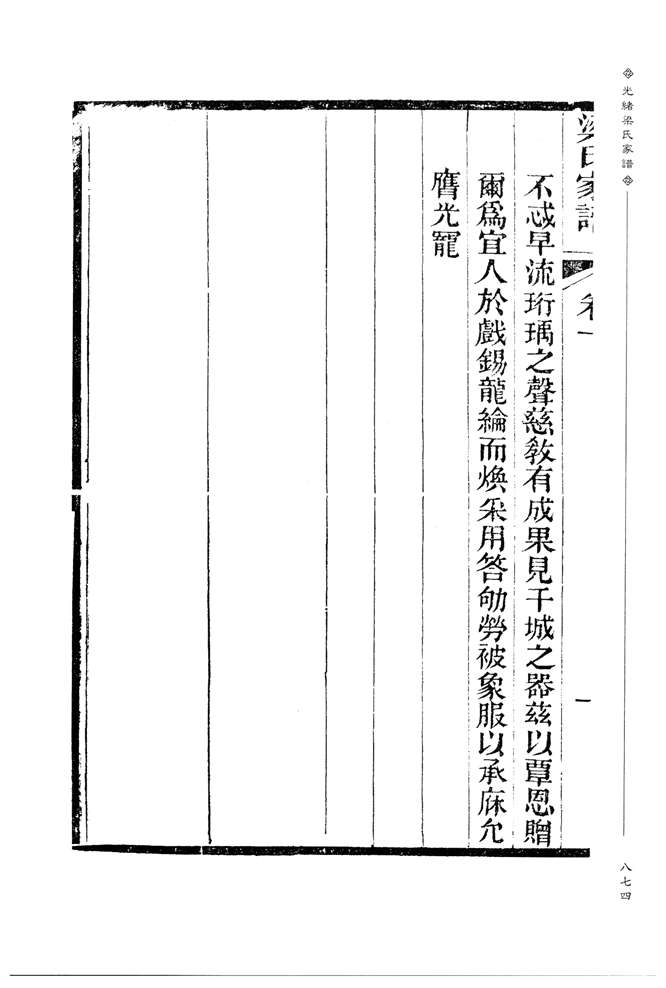 光緒梁氏家譜
八七四
梁氏家譜 卷一 一
不忒早流珩瑀之聲慈教有成果見干城之器茲以覃恩贈
爾爲宜人於戲錫龍綸而煥采用答劬勞被象服以承庥允
膺光寵